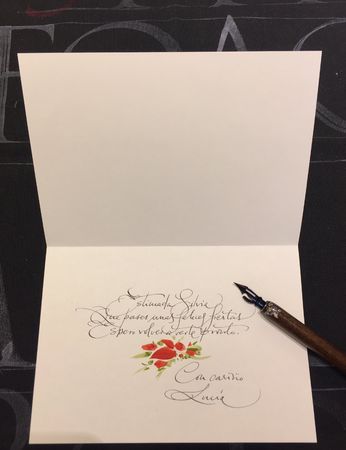 Estimada Silvia
Que pases unas felices fiestas
Espero volver a verte pronto.
Con cariño
Lucía